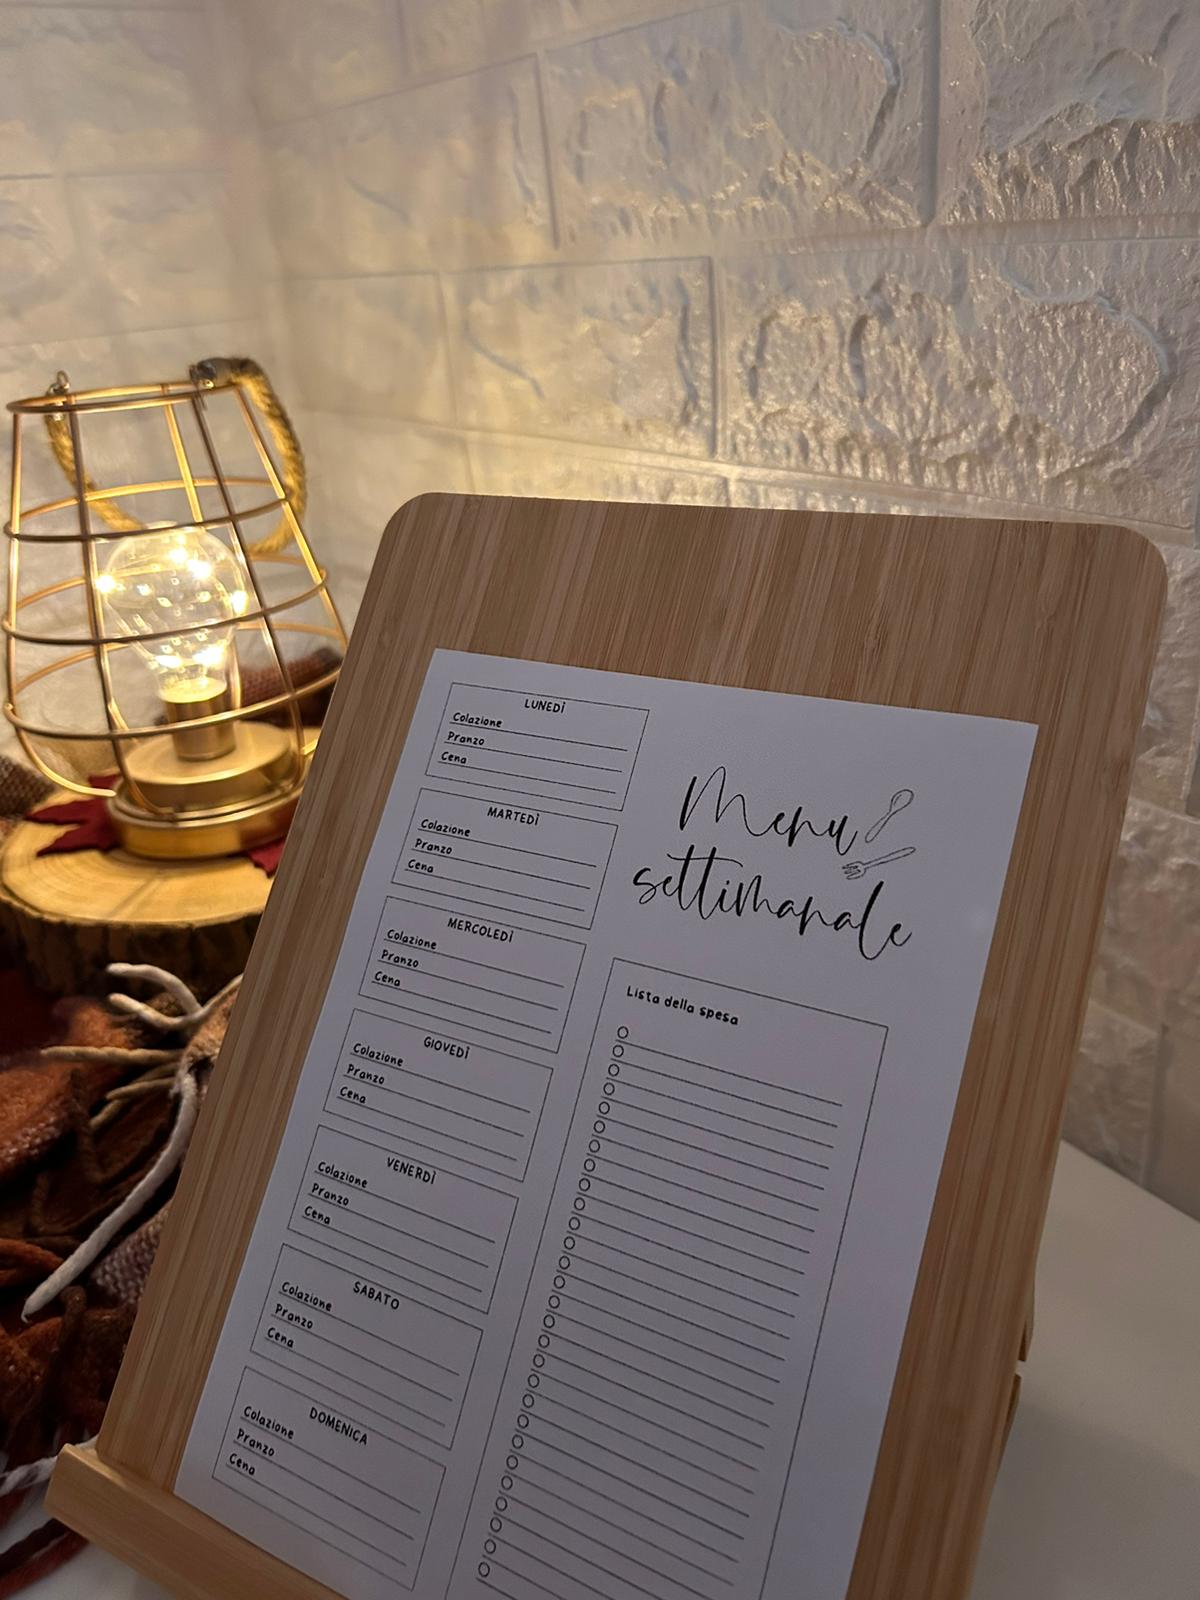 LUNEDÌ
Colazione
Pranzo
Cena
MARTEDÌ
Colazione
Pranzo
Cena
MERCOLEDÌ
Colazione
Pranzo
Cena
GIOVEDÌ
Colazione
Pranzo
Cena
VENERDÌ
Colazione
Pranzo
Cena
SABATO
Colazione
Pranzo
Cena
DOMENICA
Colazione
Pranzo
Cena
Menu
settimanale
Lista della spesa